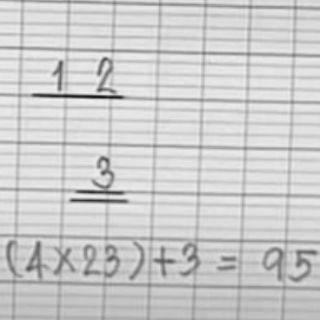 1 2
3
(4×23)+3 = 95